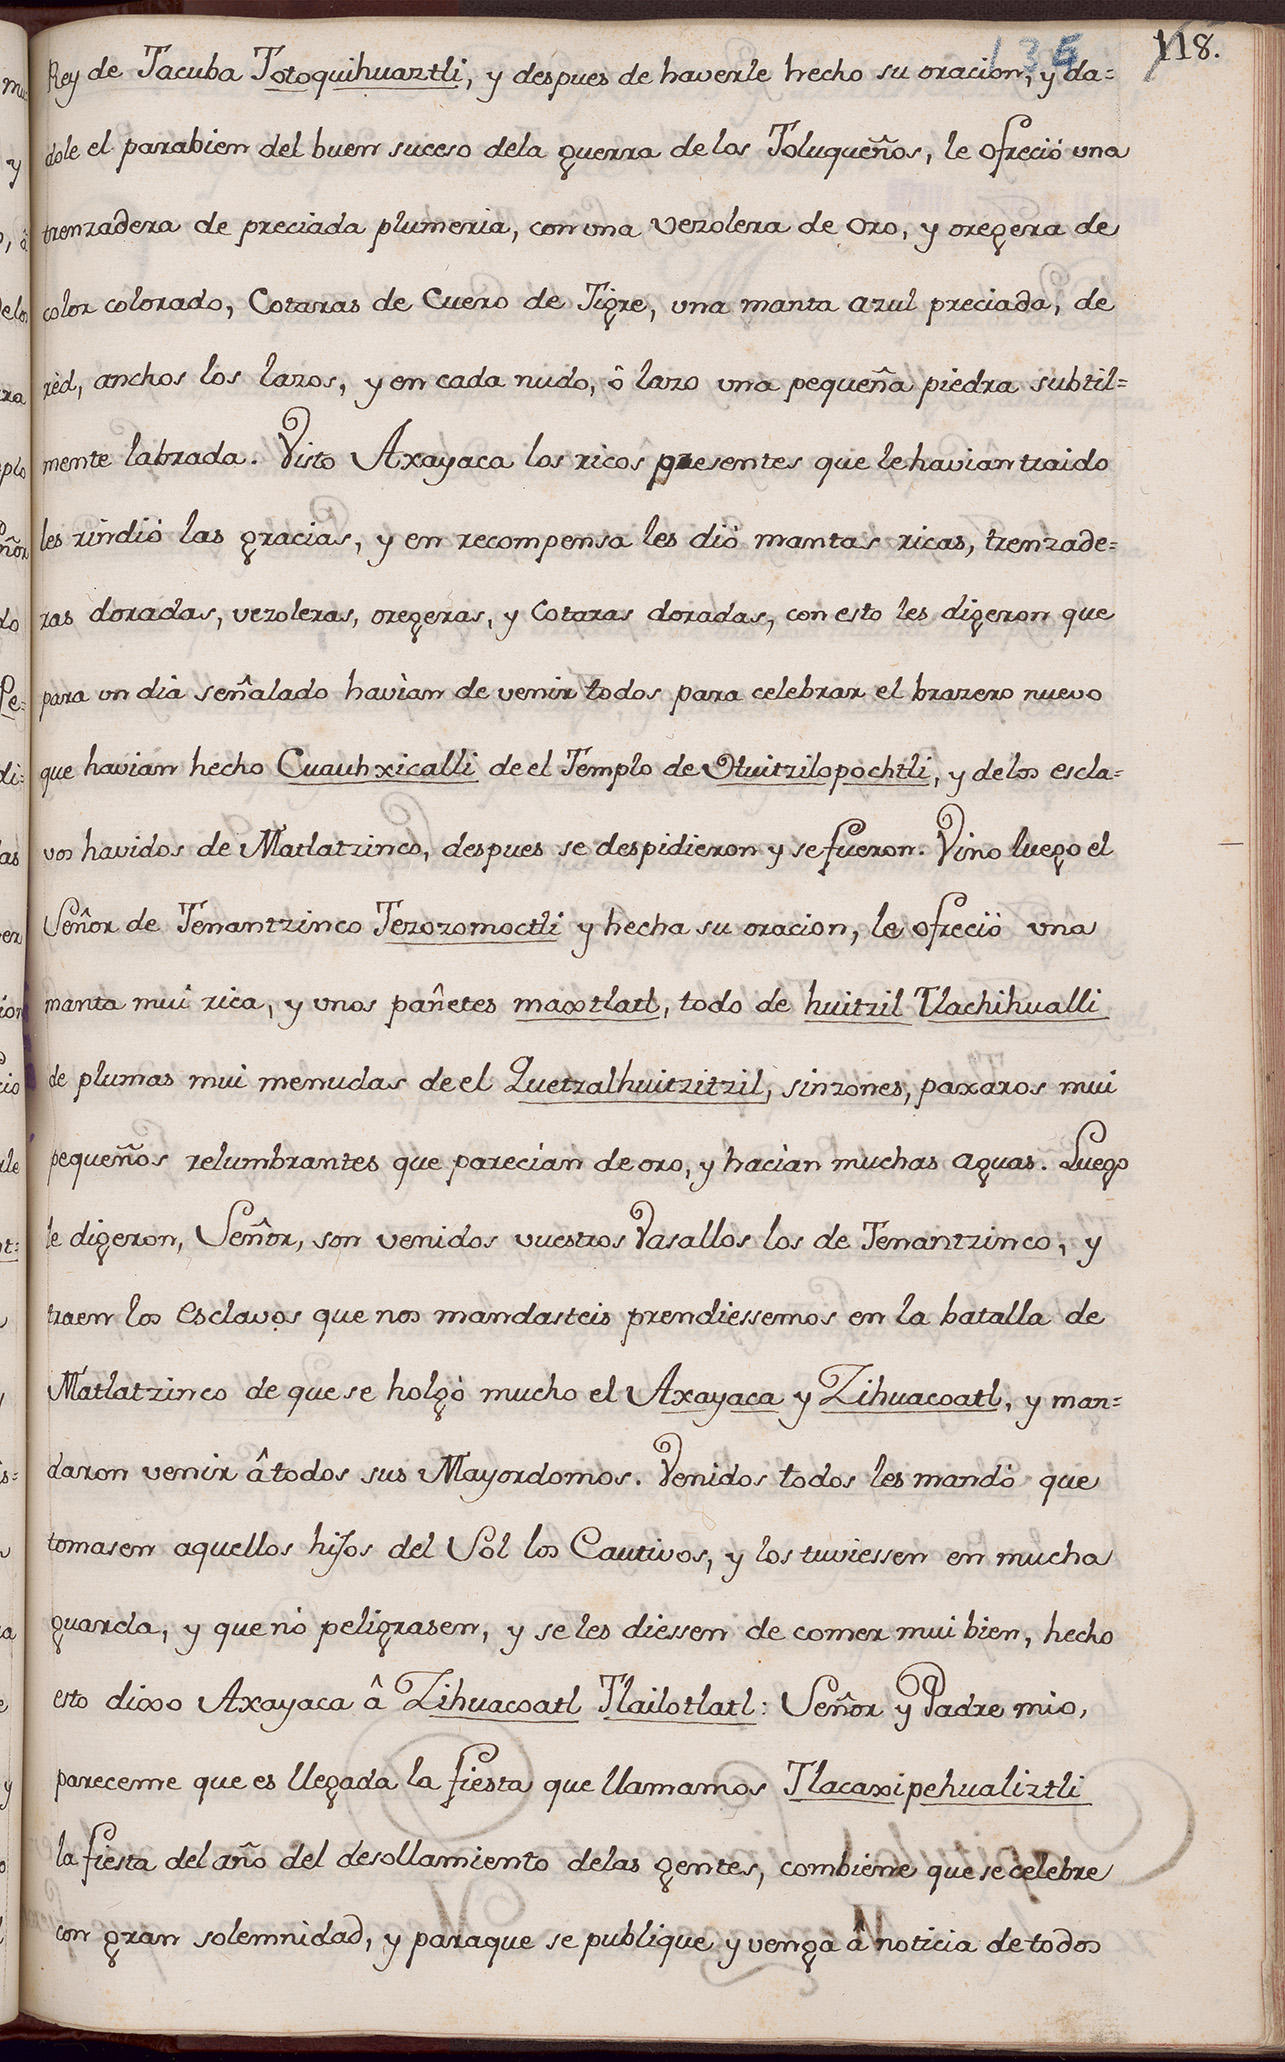 136 118.
Rey de Tacuba Totoquihuaztli, y despues de haverle hecho su oracion, y da=
dole el parabien del buen suceso dela guerra de los Toluqueños, le ofreció una
trenzadera de preciada plumeria, con una vezolera de oro, y oregera de
color colorado, Cotaras de Cuero de Tigre, una manta azul preciada, de
rèd, anchos los lazos, y en cada nudo, ô lazo una pequeña piedra subtil=
mente labrada. Visto Axayaca los ricos presentes que le havian traido
les rindió las gracias, y en recompensa les dió mantas ricas, trenzade=
ras doradas, vezoleras, oregeras, y Cotaras doradas, con esto les digeron que
para un dia señalado havian de venir todos para celebrar el brazero nuevo
que havian hecho Cuauhxicalli de el Templo de Huitzilopochtli, y de los escla=
vos havidos de Matlatzinco, despues se despidieron y se fueron. Vino luego el
Señor de Tenantzinco Tezozomoctli y hecha su oracion, le ofreció una
manta mui rica, y unos pañetes maxtlatl, todo de huitzil Tlachihualli
de plumas mui menudas de el Quetzalhuitzitzil, sinzones, paxaros mui
pequeños relumbrantes que parecian de oro, y hacian muchas aguas. Luego
le digeron, Señor, son venidos vuestros Vasallos los de Tenantzinco, y
traen los esclavos que nos mandasteis prendiessemos en la batalla de
Matlatzinco de que se holgò mucho el Axayaca y Zihuacoatl, y man=
daron venir â todos sus Mayordomos. Venidos todos les mandò que
tomasen aquellos hijos del Sol los Cautivos, y los tuviessen en mucha
guarda, y que no peligrasen, y se les diessen de comer mui bien, hecho
esto dixo Axayaca â Zihuacoatl Tlailotlatl: Señor y Padre mio,
pareceme que es llegada la fiesta que llamamos Tlacaxipehualiztli
la fiesta del año del desollamiento delas gentes, combiene que se celebre
con gran solemnidad, y paraque se publique y venga â noticia de todos